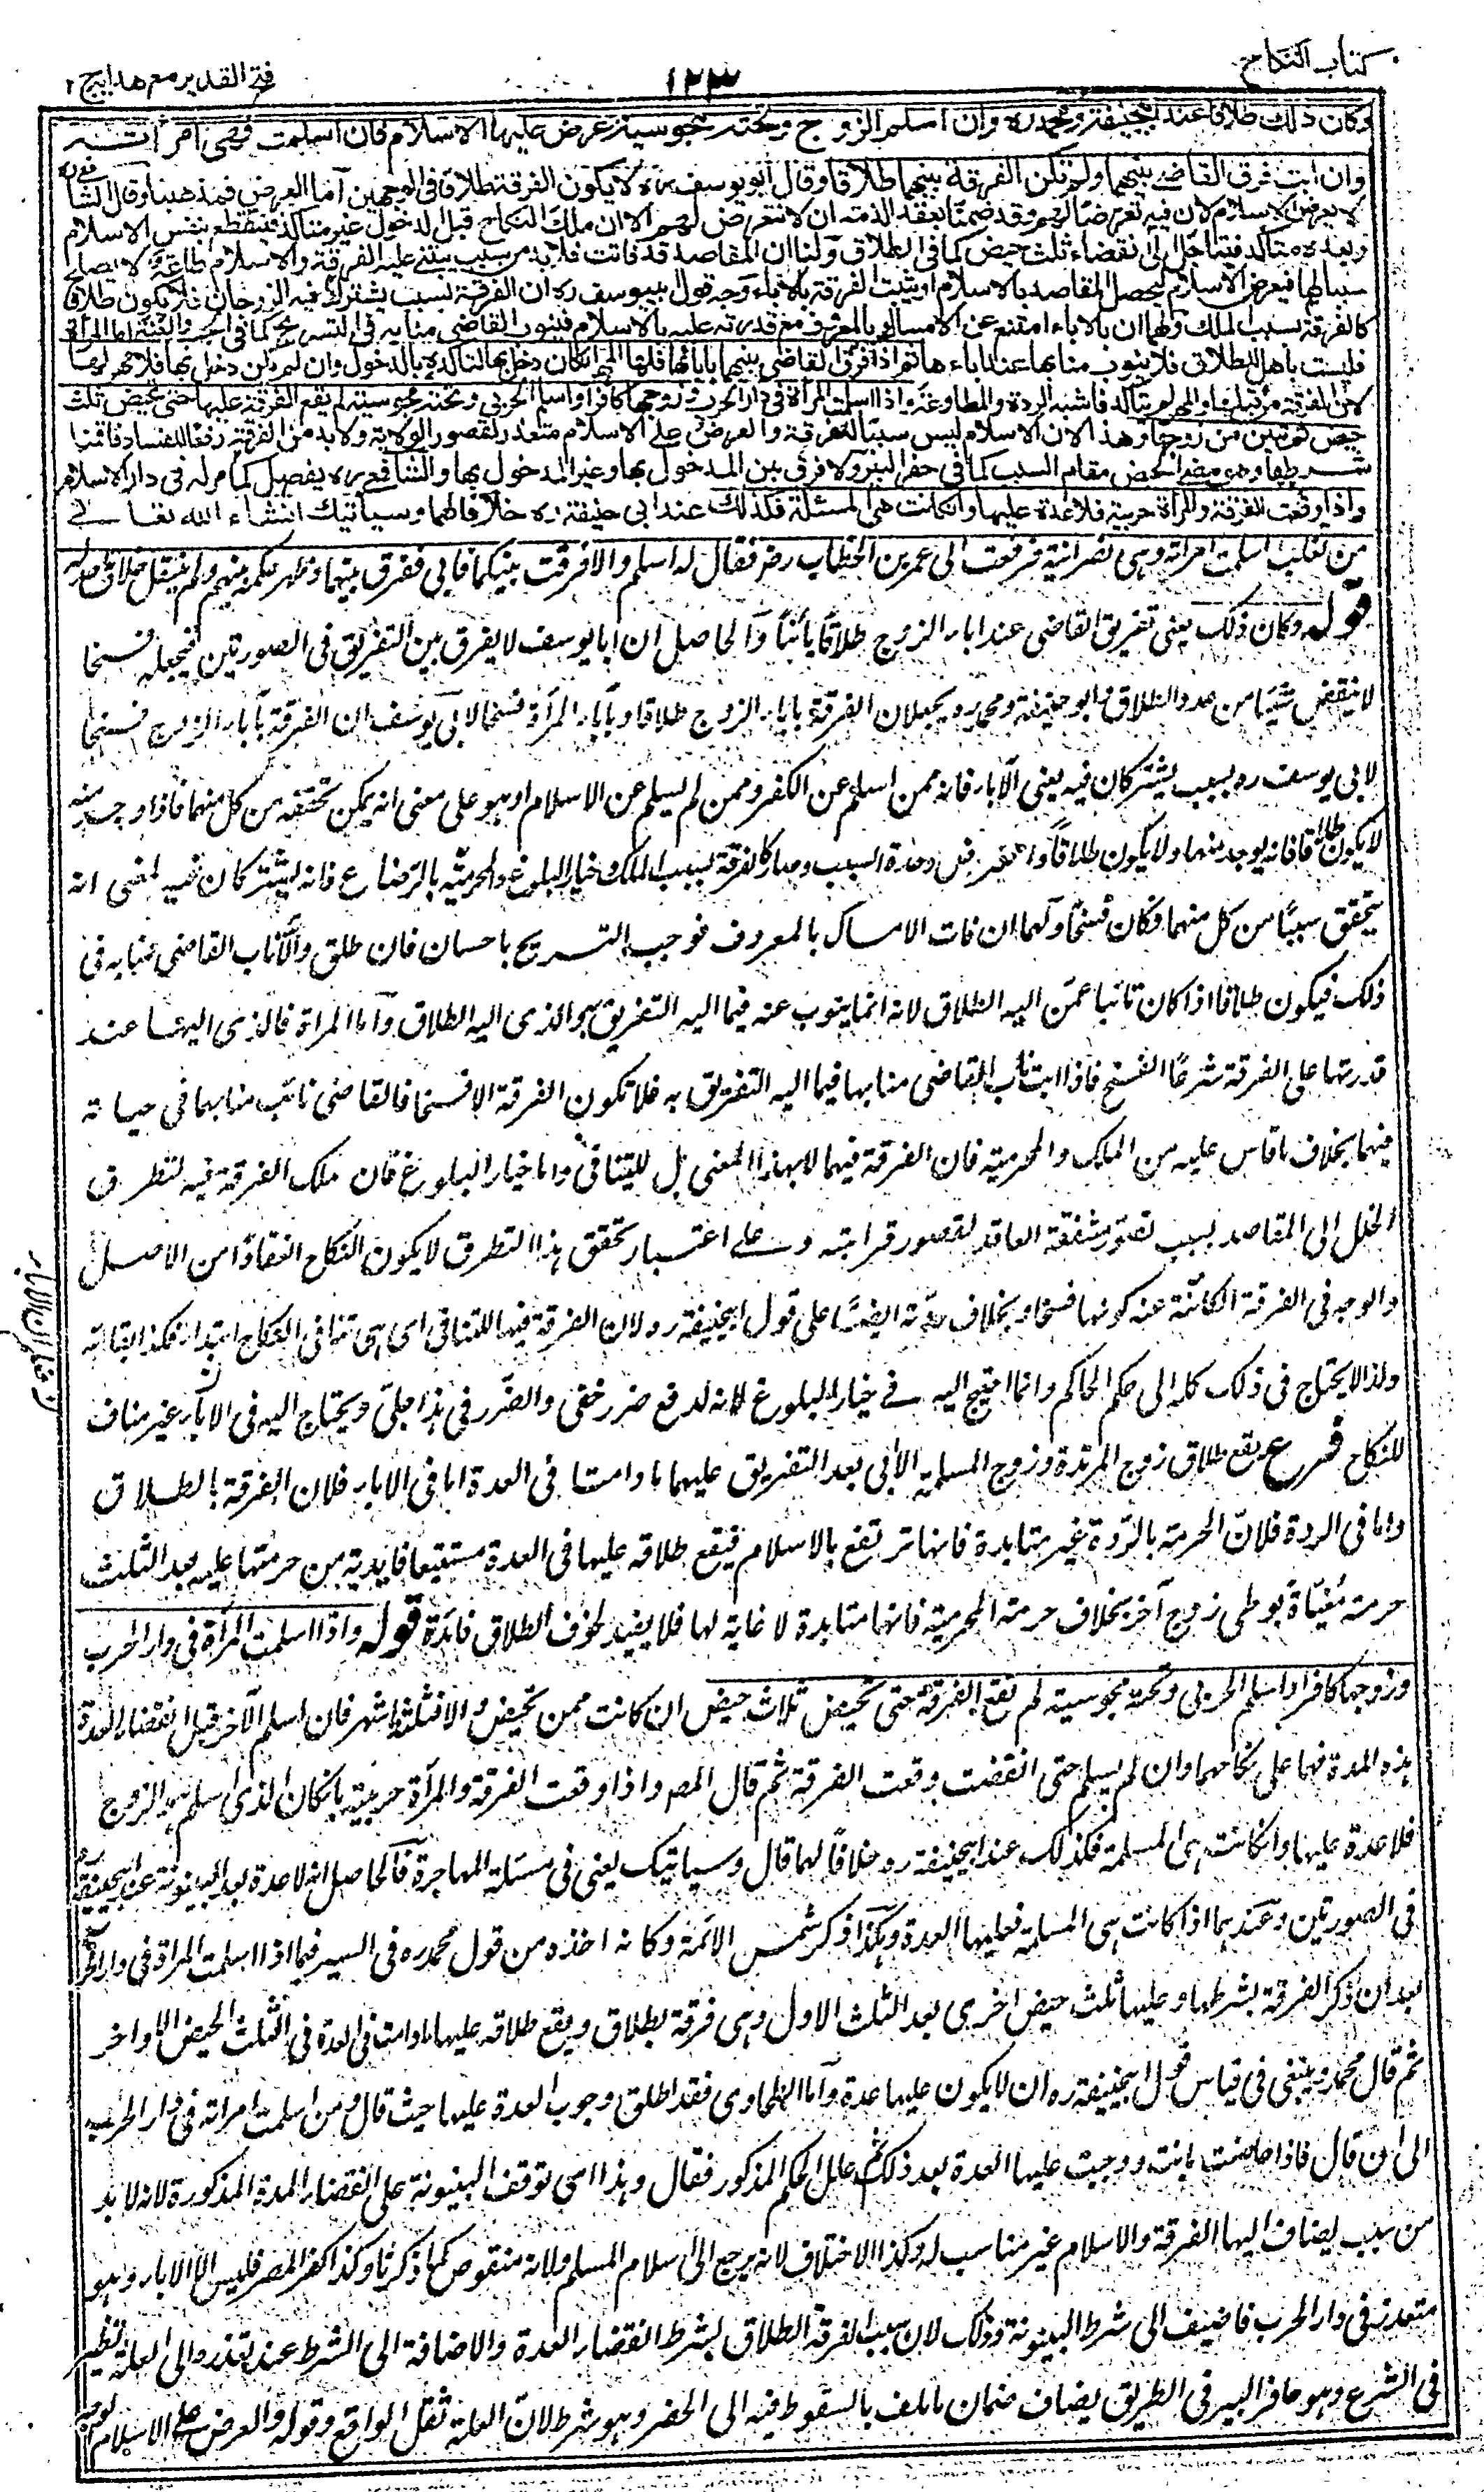 كتاب النكاح
١٢٣
فتح القدير مع هدايه ج ٢
وكان ذلك طلاقا عند ابيحنيفة ومحمد ره وان اسلم الزوج وتحته مجوسية عرض عليها الاسلام فان اسلمت فهي امرأته
وان ابت فرق القاضي بينهما ولم تكن الفرقة بينهما طلاقا وقال ابو يوسف ره لا يكون الفرقة طلاقا في الوجهين اما العرض فمذهبنا وقال الشافعي ره
لا يعرض الاسلام لان فيه تعرضا لهم وقد ضمنا بعقد الذمة ان لا نتعرض لهم الا ان ملك النكاح قبل الدخول غير متأكد فينقطع بنفس الاسلام
وبعده متأكد فيتأجل الى انقضاء ثلث حيض كما في الطلاق ولنا ان المقاصد قد فاتت فلا بد من سبب يبتني عليه الفرقة والاسلام طاعة لا يصلح
سببا لها فيعرض الاسلام لتحصل المقاصد بالاسلام او يثبت الفرقة بالاباء وجه قول ابي يوسف ره ان الفرقة بسبب يشترك فيه الزوجان فلا يكون طلاقا
كالفرقة بسبب الملك ولهما ان بالاباء امتنع عن الامساك بالمعروف مع قدرته عليه بالاسلام فينوب القاضي منابه في التسريح كما في الجب والعنة اما المرأة
فليست باهل للطلاق فلا ينوب منابها عند اباءها ثم اذا فرق القاضي بينهما بابائها فلها المهر ان كان دخل بها لتأكده بالدخول وان لم يكن دخل بها فلا مهر لها
لان الفرقة من قبلها والمهر لم يتأكد فاشبه الردة والمطاوعة واذا اسلمت المرأة في دار الحرب وزوجها كافر او اسلم الحربي وتحته مجوسية لم يقع الفرقة عليها حتى تحيض ثلث
حيض ثم تبين من زوجها وهذا لان الاسلام ليس سببا للفرقة والعرض على الاسلام متعذر لقصور الولاية ولا بد من الفرقة رفعا للفساد فاقمنا
شرطها وهو مضي الحيض مقام السبب كما في حفر البئر ولا فرق بين المدخول بها وغير المدخول بها والشافعي ره يفصل كما مر له في دار الاسلام
واذا وقعت الفرقة والمرأة حربية فلا عدة عليها وان كانت هي المسئلة فكذلك عند ابي حنيفة ره خلافا لهما وسيأتيك انشاء الله تعالى
من تغلب اسلمت امرأته وهي نصرانية فرفعت الى عمر بن الخطاب رضـ فقال له اسلم والا فرقت بينكما فابى ففرق بينهما وظهر حكمه بينهم ولم ينقل خلاف
قوله وكان ذلك يعني تفريق القاضي عند اباء الزوج طلاقا بائنا والحاصل ان ابا يوسف لا يفرق بين التفريق في الصورتين فيجعله فسخا
لا ينقض شيئا من عدد الطلاق وابو حنيفة ومحمد ره يجعلان الفرقة باباء الزوج طلاقا وباباء المرأة فسخا لابي يوسف ان الفرقة باباء الزوج فسخا
لابي يوسف ره بسبب يشتركان فيه يعني الاباء فانه ممن اسلم عن الكفر وممن لم يسلم عن الاسلام او هو على معنى انه يمكن تحققه من كل منهما فاذا وجد منه
لا يكون طلاقا فانه يوجد منهما ولا يكون طلاقا وحدة السبب وصار كالفرقة بسبب الملك وخيار البلوغ والحرمية بالرضاع فانه يشتركان فيه لمعنى انه
يتحقق سببا من كل منهما فكان فسخا ولهما ان فات الامساك بالمعروف فوجب التسريح باحسان فان طلق والا ناب القاضي منابه في
ذلك فيكون طلاقا اذا كان نائبا عمن اليه الطلاق لانه انما ينوب عنه فيما اليه التفريق به والذي اليه الطلاق واما المرأة فالذي اليها عند
قدرتها على الفرقة شرعا الفسخ فاذا ابت ناب القاضي منابها فيما اليه التفريق به فلا تكون الفرقة الا فسخا فالقاضي نائب منابهما في
منهما بخلاف ما قاس عليه من الملك والمحرمية فان الفرقة فيهما لا بهذا المعنى بل للتنافي واما خيار البلوغ فان ملك الفرقة فيه لتطرق
الخلل الى المقاصد بسبب قصور شفقة العاقد لقصور قرابته وعلى اعتبار تحقق هذا التطرق لا يكون النكاح انعقادا من الاصل
والوجه في الفرقة الكائنة عنه كونها فسخا وبخلاف ردته ايضا على قول ابيحنيفة ره لان الفرقة فيها للتنافي اي هي تنافي النكاح ابتداء فكذا بقاء
ولذا لا يحتاج في ذلك كله الى حكم الحاكم وانما احتيج اليه في خيار البلوغ لانه لدفع ضرر خفي والضرر في هذا جلي ويحتاج اليه في الاباء لانه غير مناف
للنكاح فرع يقع طلاق زوج المرتدة وزوج المسلمة الآبي بعد التفريق عليهما ما دامتا في العدة اما في الاباء فلان الفرقة بالطلاق
واما في الردة فلان الحرمة بالردة غير متابدة فانها ترتفع بالاسلام فيقع طلاقه عليها في العدة مستتبعا فائدته من حرمتها عليه بعد الثلث
حرمة مغياة بوطي زوج آخر بخلاف حرمة المحرمية فانها متابدة لا غاية لها فلا يفيد لحوق الطلاق فائدة قوله واذا اسلمت المرأة في دار الحرب
وزوجها كافر او اسلم الحربي وتحته مجوسية لم تقع الفرقة حتى تحيض ثلاث حيض ان كانت ممن تحيض والا فثلثة اشهر فان اسلم الآخر قبل انقضاء
هذه المدة فهما على نكاحهما وان لم يسلم حتى انقضت وقعت الفرقة ثم قال المصـ واذا وقعت الفرقة والمرأة حربية بان كان الذي اسلم هو الزوج
فلا عدة عليها وان كانت هي المسلمة فكذلك عند ابيحنيفة ره خلافا لهما قال وسيأتيك يعني في مسئلة المهاجرة فالحاصل انه لا عدة بعد البينونة عند ابيحنيفة ره
في الصورتين وعندهما اذا كانت هي المسلمة فعليها العدة وهكذا ذكر شمس الائمة وكانه اخذه من قول محمد ره في السير فيما اذا اسلمت المرأة في دار الحرب
بعد ان ذكر الفرقة بشرطها وعليها ثلث حيض اخرى بعد الثلث الاول وهي فرقة بطلاق ويقع طلاقه عليها ما دامت في العدة في الثلث الحيض الاواخر
ثم قال محمد وينبغي في قياس قول ابيحنيفة ره ان لا يكون عليها عدة واما الطحاوي فقد اطلق وجوب العدة عليها حيث قال ومن اسلمت امرأته في دار الحرب
الى ان قال فاذا حاضت بانت ووجبت عليها العدة بعد ذلك ثم علل الحكم المذكور فقال وهذا اي توقف البينونة على انقضاء المدة المذكورة لانه لا بد
من سبب يضاف اليها الفرقة والاسلام غير مناسب له وكذا الاختلاف لانه يرجع الى اسلام المسلم ولانه منقوص كما ذكرنا وكذا كفر المصر فليس الا الاباء وهو
متعذر في دار الحرب فاضيف الى شرط البينونة وذلك لان سبب الفرقة الطلاق بشرط انقضاء العدة والاضافة الى الشرط عند تعذره الى العلة نظير
في الشرع وهو حافر البير في الطريق يضاف ضمان ما تلف بالسقوط فيه الى الحفر وهو شرط لان العلة ثقل الواقع وقوله والعرض على الاسلام